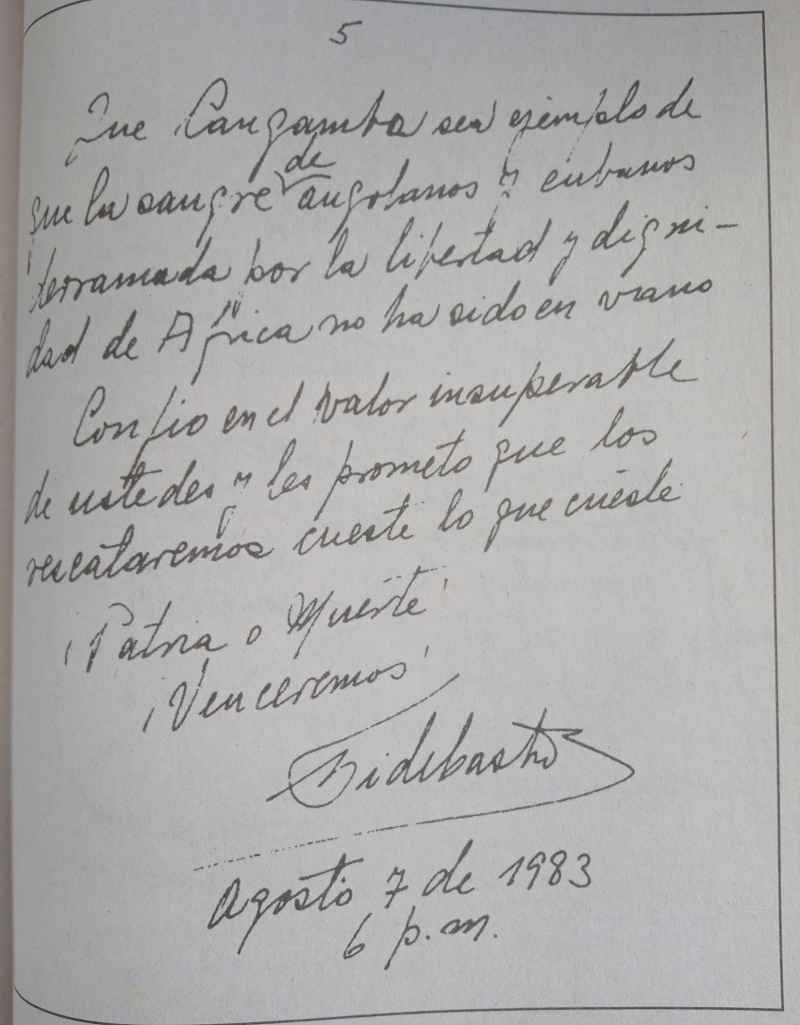 5
Que Cangamba sea ejemplo de
que la sangre de angolanos y cubanos
derramada por la libertad y digni-
dad de África no ha sido en vano
Confio en el valor insuperable
de ustedes y les prometo que los
rescataremos cueste lo que cueste
¡Patria o Muerte!
¡Venceremos!
Fidel Castro
Agosto 7 de 1983
6 p.m.